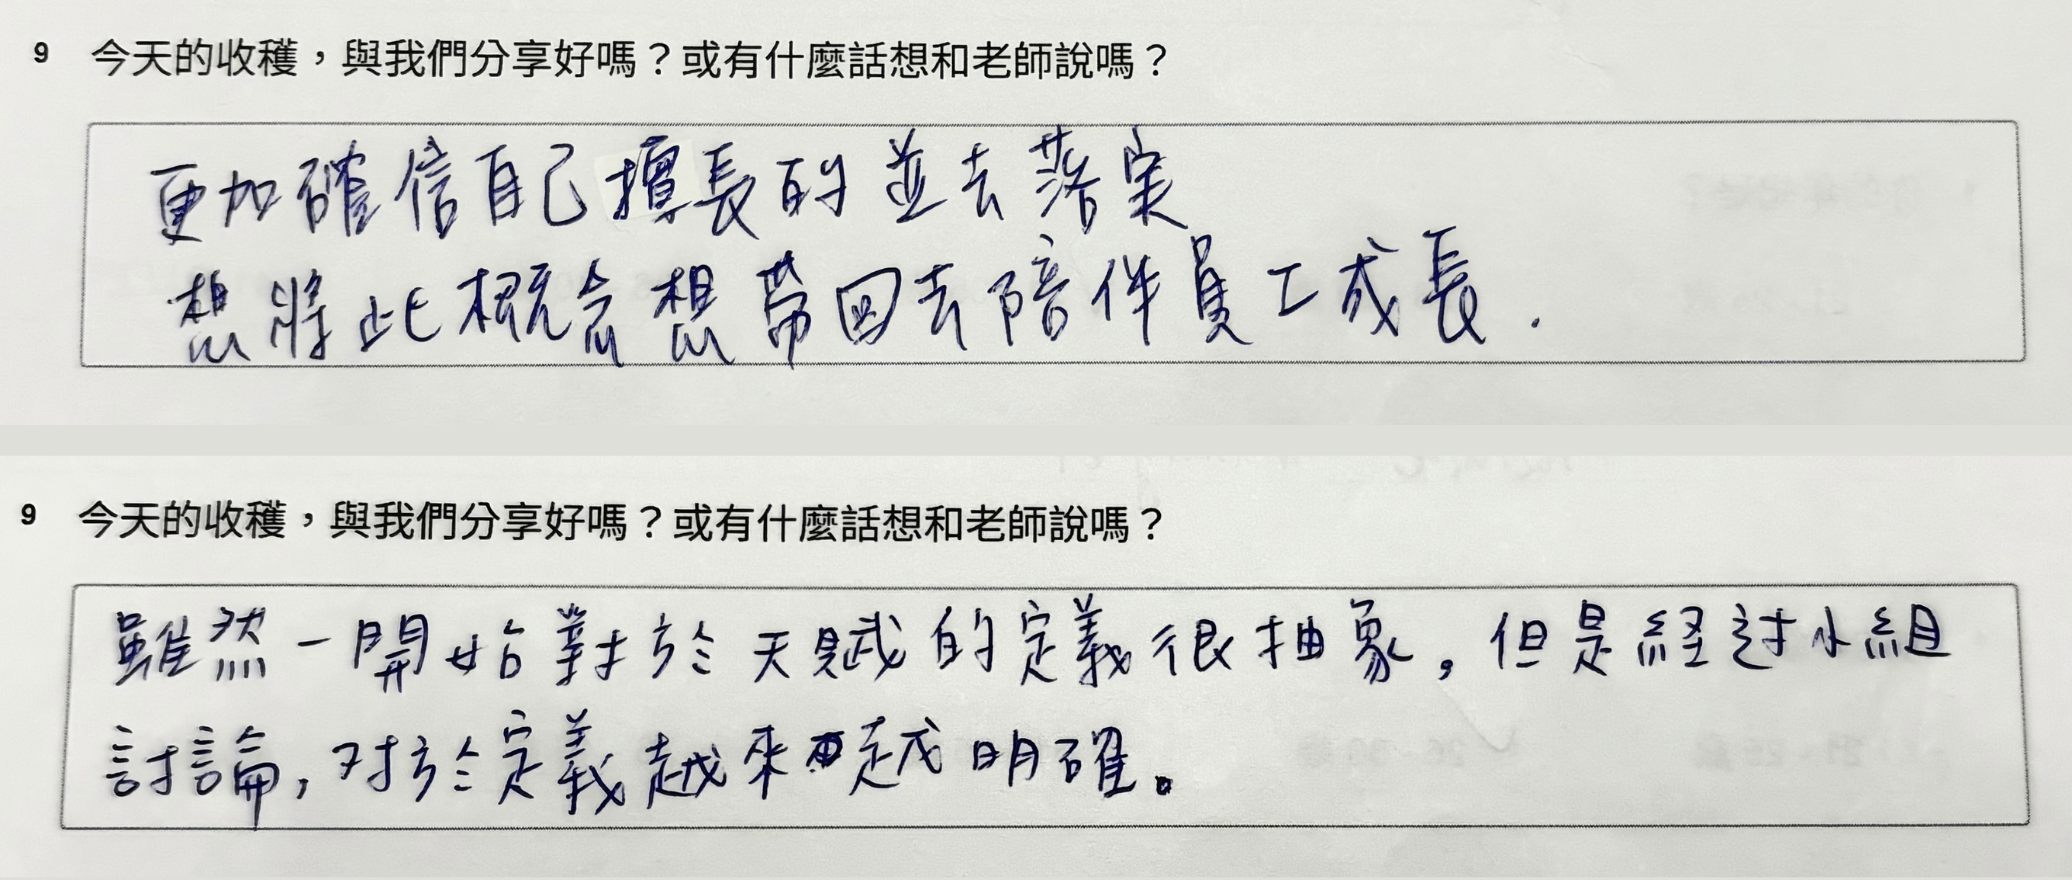 9 今天的收穫，與我們分享好嗎？或有什麼話想和老師說嗎？
更加確信自己擅長的並去落実
想將此概念想帶回去陪伴員工成長.
9 今天的收穫，與我們分享好嗎？或有什麼話想和老師說嗎？
雖然一開始對於天賦的定義很抽象，但是経过小組
討論，对於定義越來越明確。